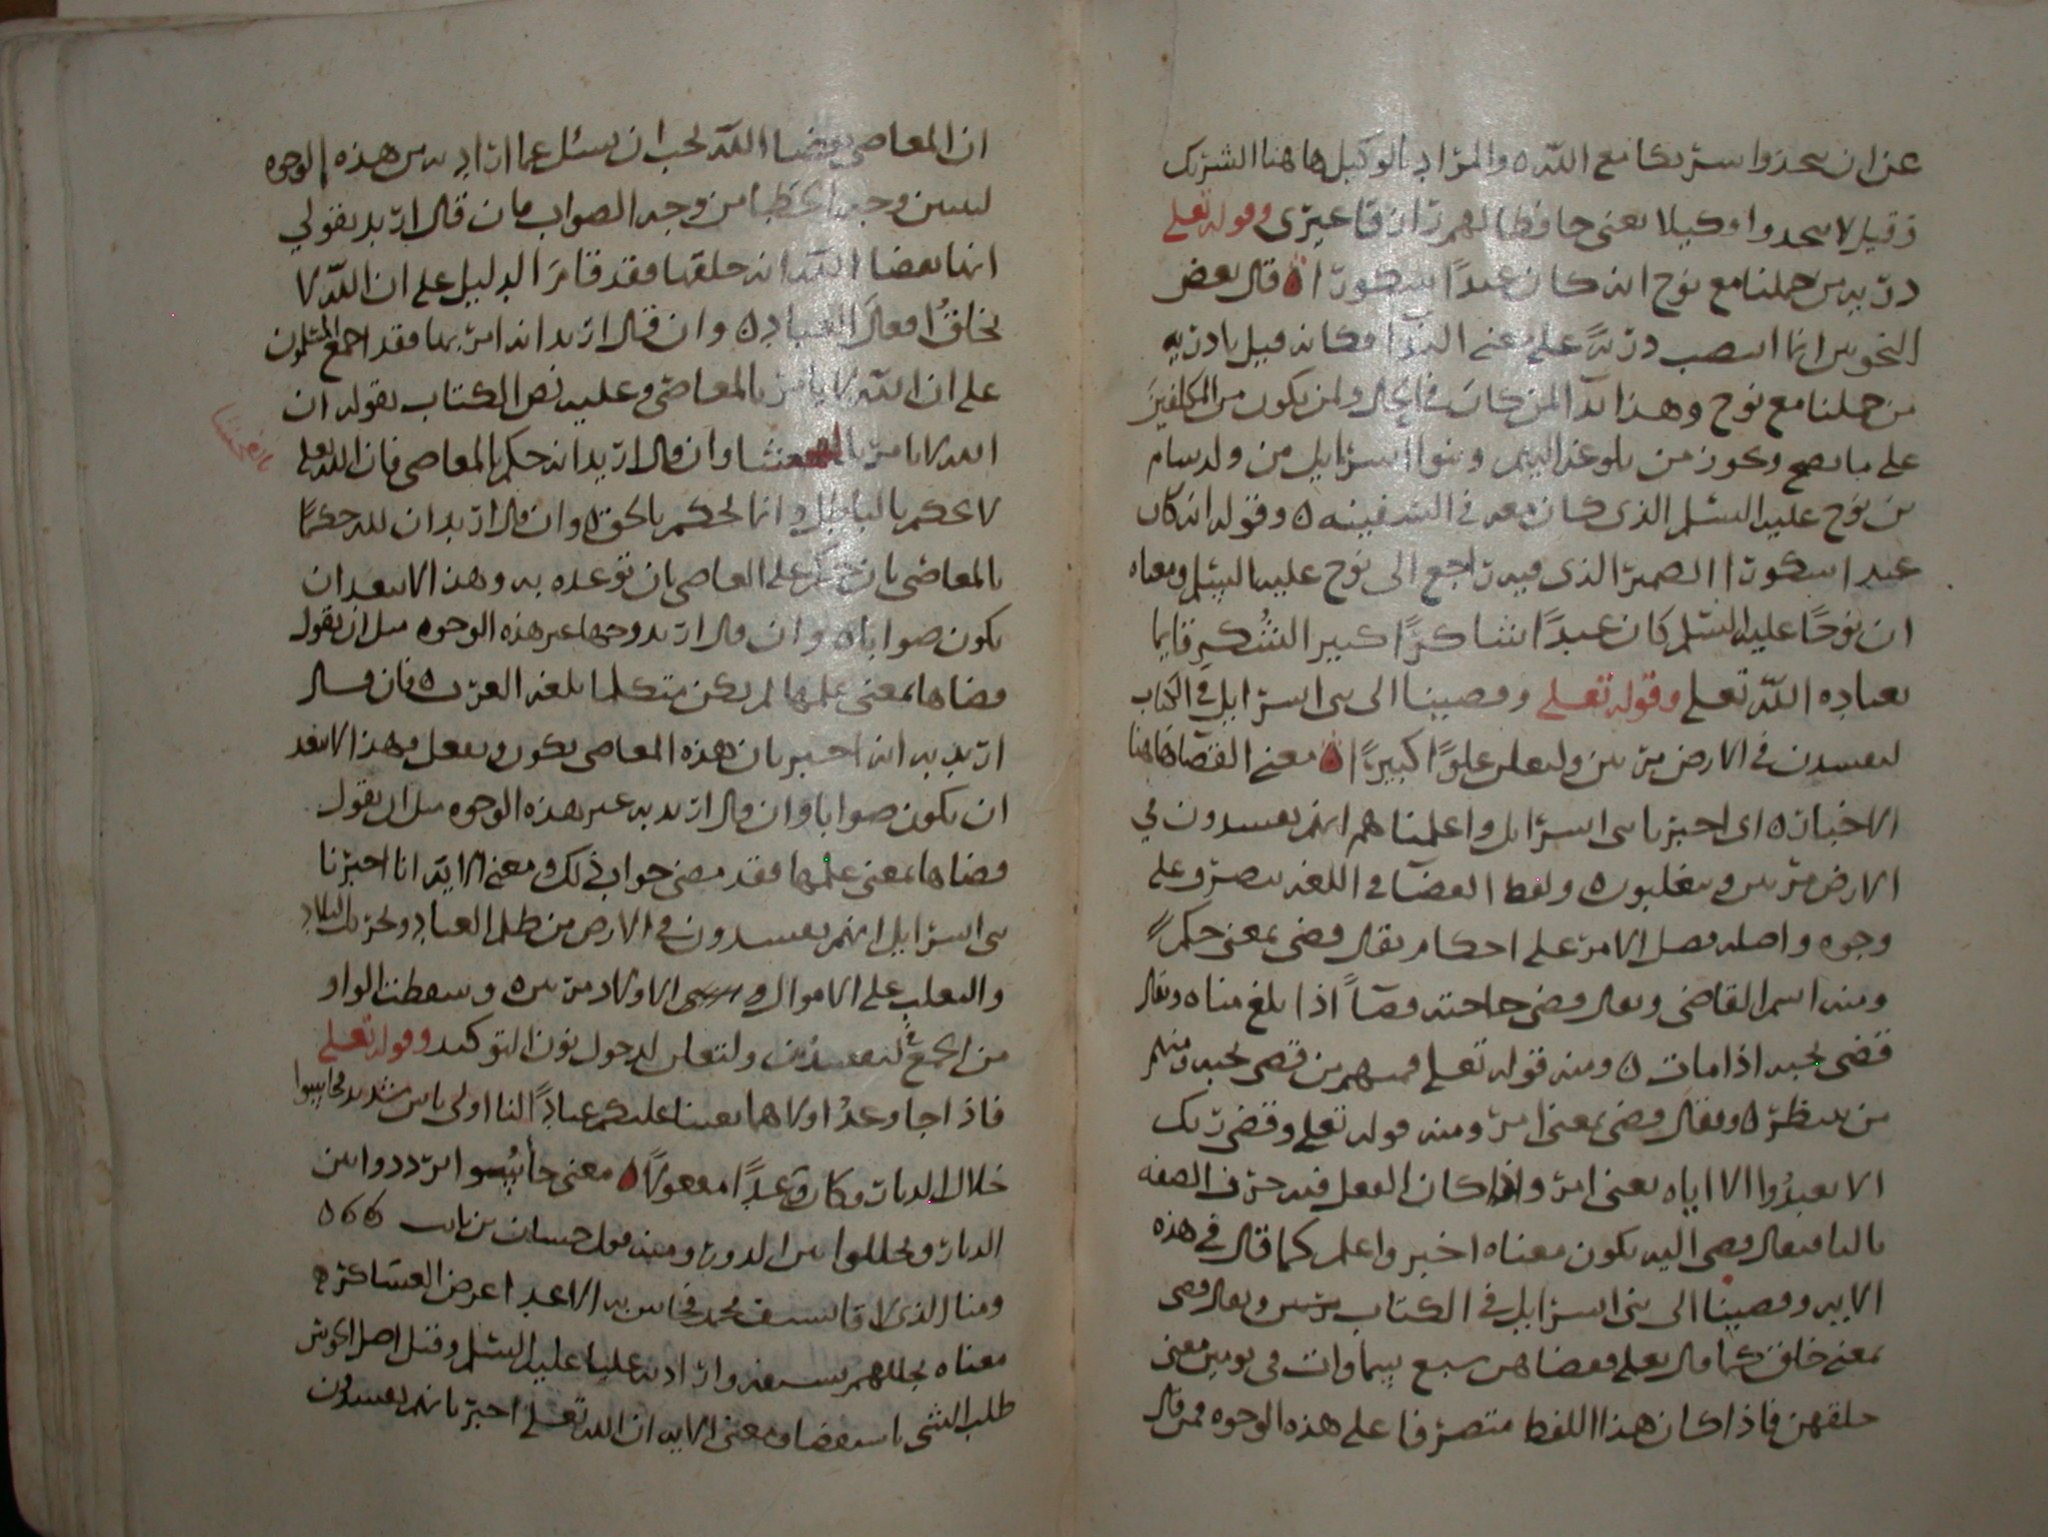 عن ان يتخذوا شريكا مع الله ه والمراد بالوكيل هاهنا الشريك
وقيل لا تتخذوا وكيلا يعني حافظا لهم رازقا غيري وقوله تعلى
ذرية من حملنا مع نوح انه كان عبدًا شكورًا ه قال بعض
النحويين انما انتصب ذريةً على معنى الندا فكانه قيل يا ذرية
من حملنا مع نوح وهذا ندا لمن كان في الحال ولمن يكون من المكلفين
على ما يصح ويجوز من بلوغه اليهم وبنوا اسرايل من ولد سام
بن نوح عليه السلم الذي كان معه في السفينه ه وقوله انه كان
عبدا شكورًا الضمير الذي فيه راجع الى نوح عليه السلم ومعناه
ان نوحًا عليه السلم كان عبدًا شاكرًا كبير الشُكرِ قايما
بعباده الله تعلى وقوله تعلى وقضينا الى بني اسرايل في الكتاب
لتفسدن في الارض مرتين ولتعلن علوًا كبيرًا ه معنى القضا هاهنا
الاخبار ه اي اخبرنا بني اسرايل واعلمناهم انهم يفسدون في
الارض مرتين ويتغلبون ه ولفظ القضا في اللغه يتصرف على
وجوه واصله فصل الامر على احكام يقال قضى بمعنى حكم
ومنه اسم القاضي ويقال قضى حاجته قضاً اذا بلغ مناه ويقال
قضى نحبه اذا مات ه ومنه قوله تعلى فمنهم من قضى نحبه ومنهم
من ينتظر ه ويقال قضى بمعنى امر ومنه قوله تعلى وقضى ربك
الا تعبدُوا الا اياه يعني امر واذا كان الفعل فيه حرف الصفه
يقال قضى اليه يكون معناه اخبر واعلم كما قال في هذه
الايه وقضينا الى بني اسرايل في الكتاب ويقال قضى
بمعنى خلق كما قال تعلى فقضاهن سبع سماوات في يومين معنى
خلقهن فاذا كان هذا اللفظ متصرفا على هذه الوجوه فمن قال
ان المعاصي بقضا الله يجب ان يسئل عما اراد به من هذه الوجوه
ليبين وجه الخطا من وجه الصواب فان قال اريد بقولي
انها بقضا الله انه خلقها فقد قام الدليل على ان الله لا
يخلقُ افعالَ العباد ه وان قال اريد انه امر بها فقد اجمع المسلمون
على ان الله لا يامر بالمعاصي وعليه نص الكتاب بقوله ان
الله لا يامر بالفحشا وان قال اريد انه حكم بالمعاصي فان الله تعلى
بالفحشا
لا يحكم بالباطل وانما يحكم بالحق ه وان قال اريد ان لله حكمًا
بالمعاصي بان حكم على العاصي بان توعده به وهذا لا يبعد ان
يكون صوابا ه وان قال اريد وجها غير هذه الوجوه مثل ان يقول
قضاها بمعنى علمها لم يكن متكلما بلغه العرب ه فان قال
اريد به انه اخبر بان هذه المعاصي تكون وتفعل فهذا لا يبعد
ان يكون صوابا وان قال اريد به غير هذه الوجوه مثل ان يقول
قضاها بمعنى علمها فقد مضى جواب ذلك ومعنى الايه انا اخبرنا
بني اسرايل انهم يفسدون في الارض من ظلم العباد وتخريب البلاد
والتغلب على الاموال و الاولاد مرتين ه وسقطت الواو
من الجمع في لتفسدن ولتعلن لدخول نون التوكيد وقوله تعلى
فاذا جا وعدُ اولاهما بعثنا عليكم عبادًا لنا اولي باس شديد فجاسوا
خلال الديار وكان وعدًا مفعولًا ه معنى جاسوا ترددوا بين
الديار وتخللوا بين الدور ومنه قول حسان بن ثابت
ومنا الذي لاقا بسيف محمد فجاس به الاعدا عرض العساكر ه
معناه تخللهم بسيفه واراد به عليا عليه السلم وقيل اصل الجوس
طلب الشي باستقصا ومعنى الايه ان الله تعلى اخبر بانهم يفسدون